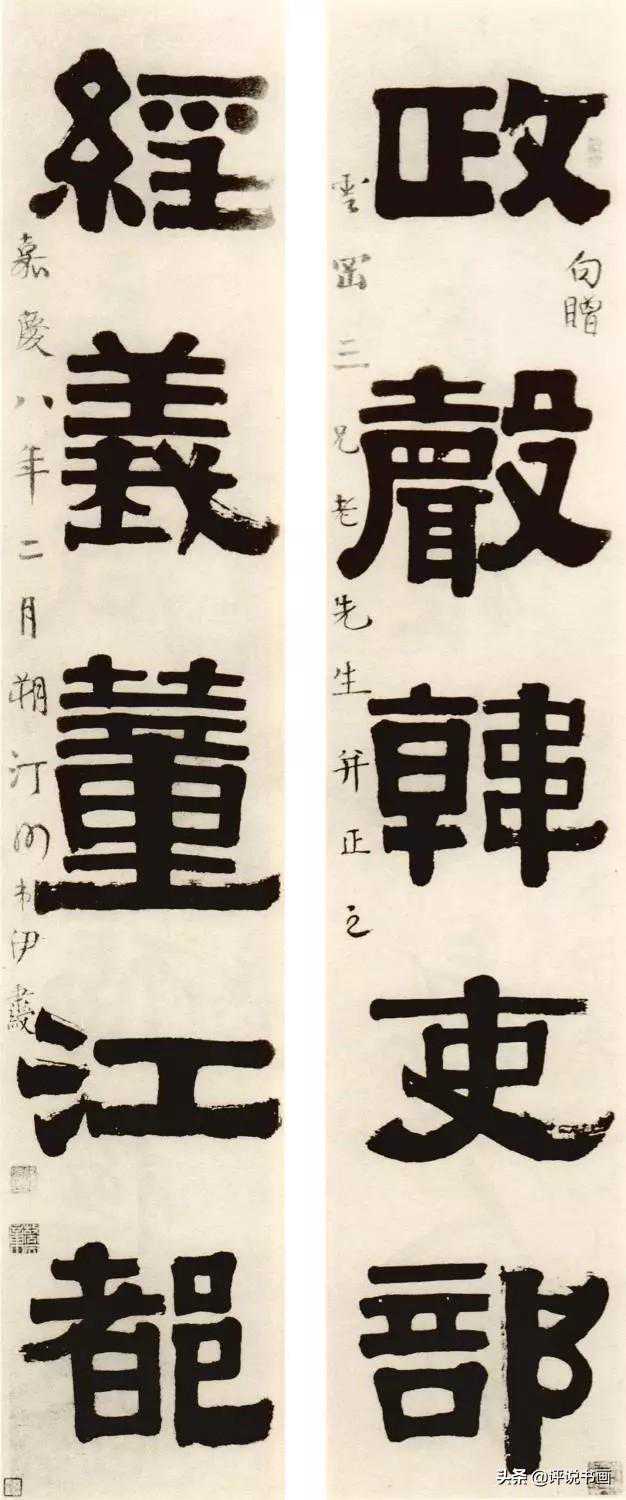 句贈
政聲韓吏部
雲三兄老先生并正之
經義董江都
嘉慶八年二月朔汀州弟伊秉綬
头条 @评说书画